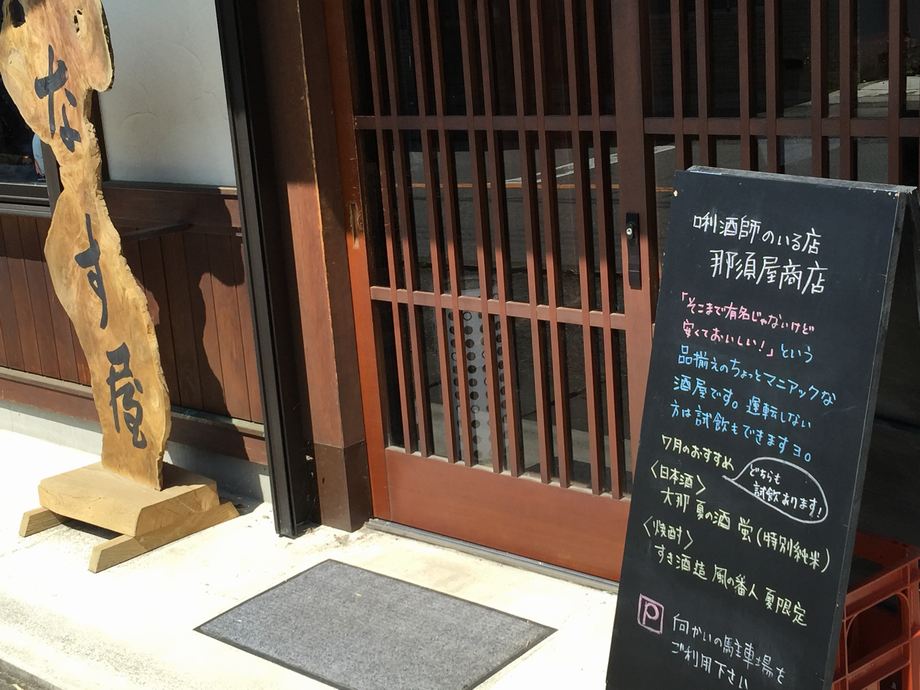 なす屋
唎酒師のいる店
那須屋商店
「そこまで有名じゃないけど
安くておいしい！」という
品揃えのちょっとマニアックな
酒屋です。運転しない
方は試飲もできますヨ。
7月のおすすめ
どちらも
試飲あります！
〈日本酒〉
大那 夏の酒 蛍(特別純米)
〈焼酎〉
すき酒造 風の番人 夏限定
P 向かいの駐車場を
ご利用下さい